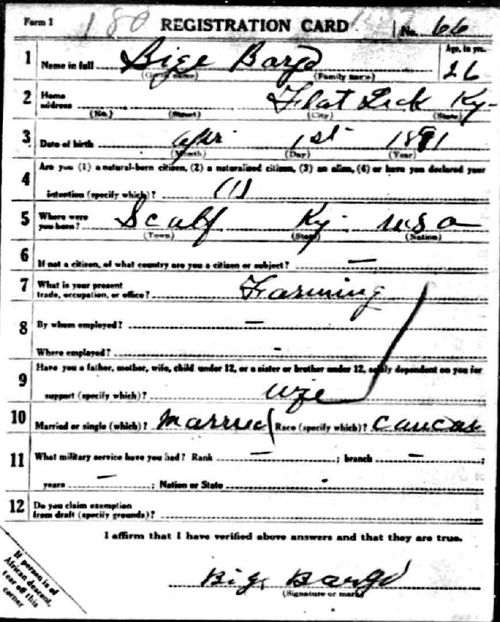 Form 1 180 REGISTRATION CARD No. 66
1 Name in full Bige Bargo Age, in yrs. 26
(Given name) (Family name)
2 Home address Flat Lick Ky.
(No.) (Street) (City) (State)
3 Date of birth Apr 1st 1891
(Month) (Day) (Year)
4 Are you (1) a natural-born citizen, (2) a naturalized citizen, (3) an alien, (4) or have you declared your
intention (specify which)? (1)
5 Where were you born? Scalf Ky. USA
(Town) (State) (Nation)
6 If not a citizen, of what country are you a citizen or subject? —
7 What is your present trade, occupation, or office? Farming
8 By whom employed? —
Where employed? -
9 Have you a father, mother, wife, child under 12, or a sister or brother under 12, solely dependent on you for
support (specify which)? wife
10 Married or single (which)? Married Race (specify which)? Caucas
11 What military service have you had? Rank — ; branch — ;
years — ; Nation or State
12 Do you claim exemption
from draft (specify grounds)?
I affirm that I have verified above answers and that they are true.
Bige Bargo
(Signature or mark)
If person is of
African descent,
tear off this
corner